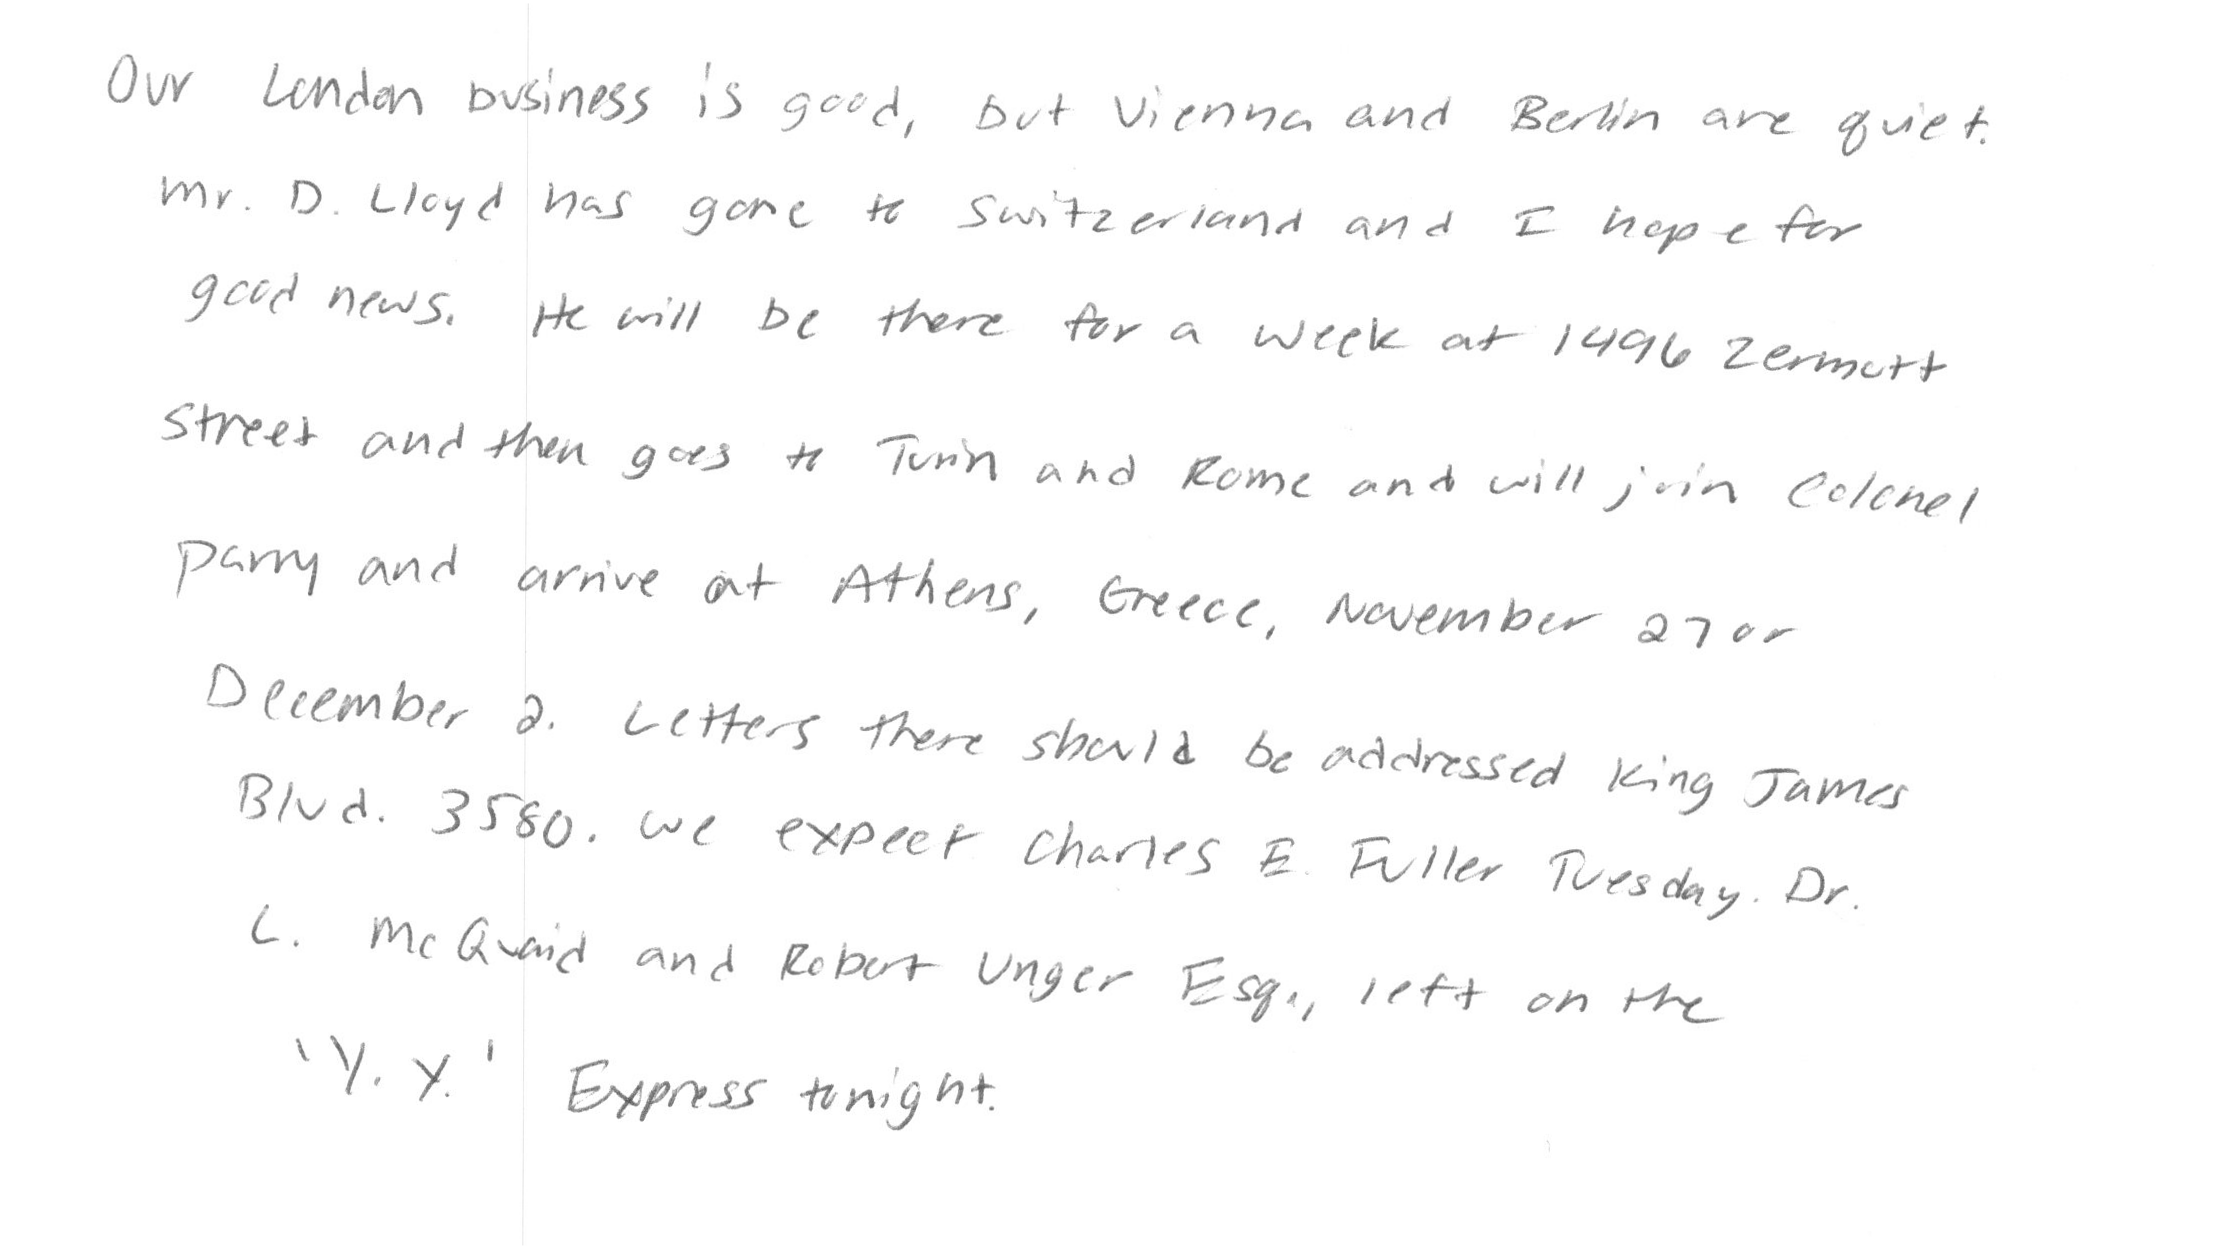 Our London business is good, but Vienna and Berlin are quiet.
Mr. D. Lloyd has gone to Switzerland and I hope for
good news. He will be there for a week at 1496 Zermott
Street and then goes to Turin and Rome and will join Colonel
Parry and arrive at Athens, Greece, November 27 or
December 2. Letters there should be addressed King James
Blvd. 3580. We expect Charles E. Fuller Tuesday. Dr.
L. McQuaid and Robert Unger Esq., left on the
'Y. X.' Express tonight.